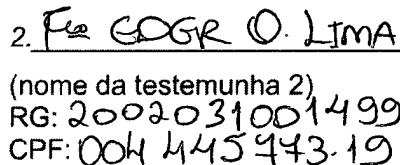 2. Fco EDGR O. LIMA
(nome da testemunha 2)
RG: 2002031001499
CPF: 004 445973-19